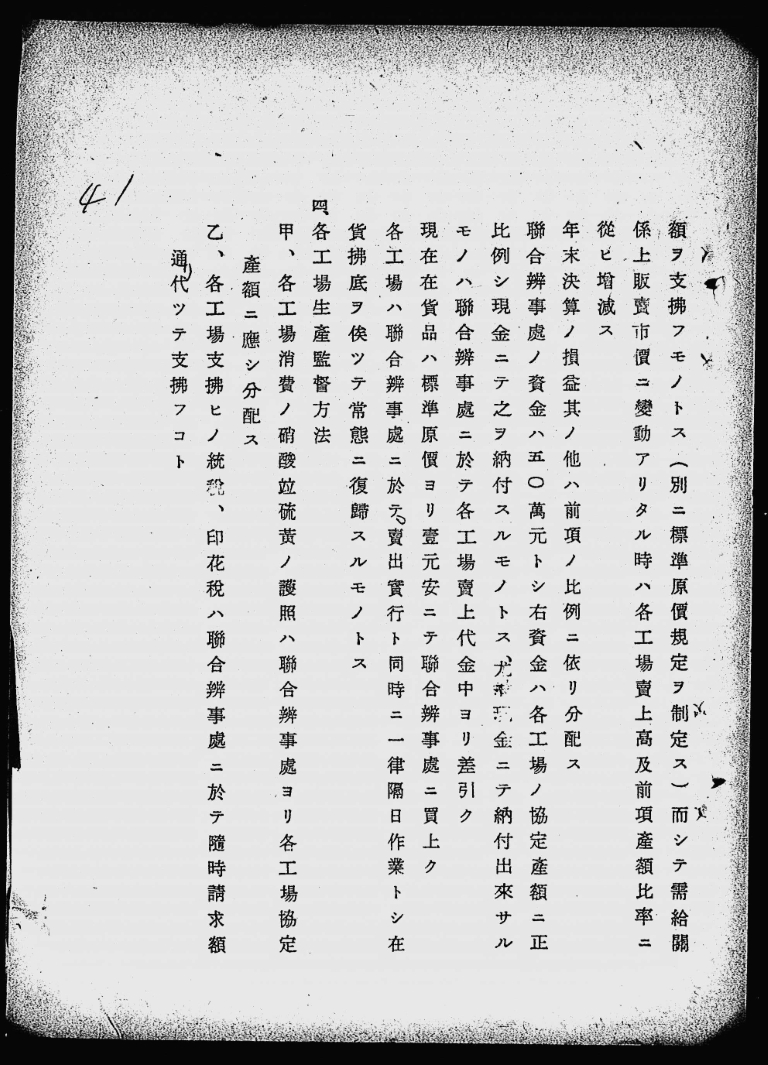 41
額ヲ支拂フモノトス(別ニ標準原價規定ヲ制定ス)而シテ需給關
係上販賣市價ニ變動アリタル時ハ各工場賣上高及前項產額比率ニ
從ヒ增減ス
年末決算ノ損益其ノ他ハ前項ノ比例ニ依リ分配ス
聯合辨事處ノ資金ハ五〇萬元トシ右資金ハ各工場ノ協定產額ニ正
比例シ現金ニテ之ヲ納付スルモノトス、尤モ現金ニテ納付出來サル
モノハ聯合辨事處ニ於テ各工場賣上代金中ヨリ差引ク
現在在貨品ハ標準原價ヨリ壹元安ニテ聯合辨事處ニ買上ク
各工場ハ聯合辨事處ニ於テ賣出實行ト同時ニ一律隔日作業トシ在
貨拂底ヲ俟ツテ常態ニ復歸スルモノトス
四、各工場生產監督方法
甲、各工場消費ノ硝酸竝硫黃ノ護照ハ聯合辨事處ヨリ各工場協定
產額ニ應シ分配ス
乙、各工場支拂ヒノ統稅、印花稅ハ聯合辨事處ニ於テ隨時請求額
通リ代ツテ支拂フコト